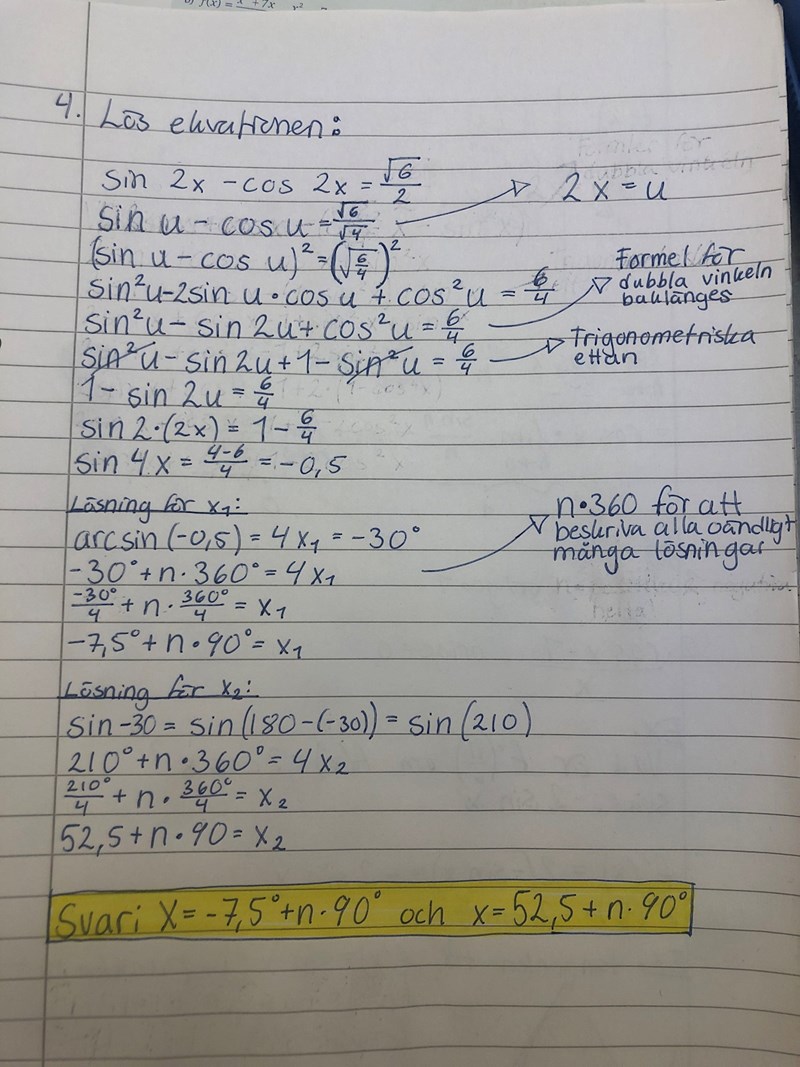 b) f(x) =
4. Lös ekvationen:
sin 2x - cos 2x = √6/2 → 2x = u
sin u - cos u = √6/√4
(sin u - cos u)² = (√6/4)²
sin²u-2sin u·cos u + cos²u = 6/4
sin²u - sin 2u + cos²u = 6/4 → Formel för dubbla vinkeln baklänges
sin²u - sin 2u + 1 - sin²u = 6/4 → Trigonometriska ettan
1 - sin 2u = 6/4
sin 2·(2x) = 1 - 6/4
sin 4x = 4-6/4 = -0,5
Lösning för x₁:
arcsin (-0,5) = 4x₁ = -30°
-30° + n·360° = 4x₁ → n·360 för att beskriva alla oändligt många lösningar
-30°/4 + n·360°/4 = x₁
-7,5° + n·90° = x₁
Lösning för x₂:
sin -30 = sin (180-(-30)) = sin (210)
210° + n·360° = 4x₂
210°/4 + n·360°/4 = x₂
52,5 + n·90 = x₂
Svar: x = -7,5° + n·90° och x = 52,5 + n·90°